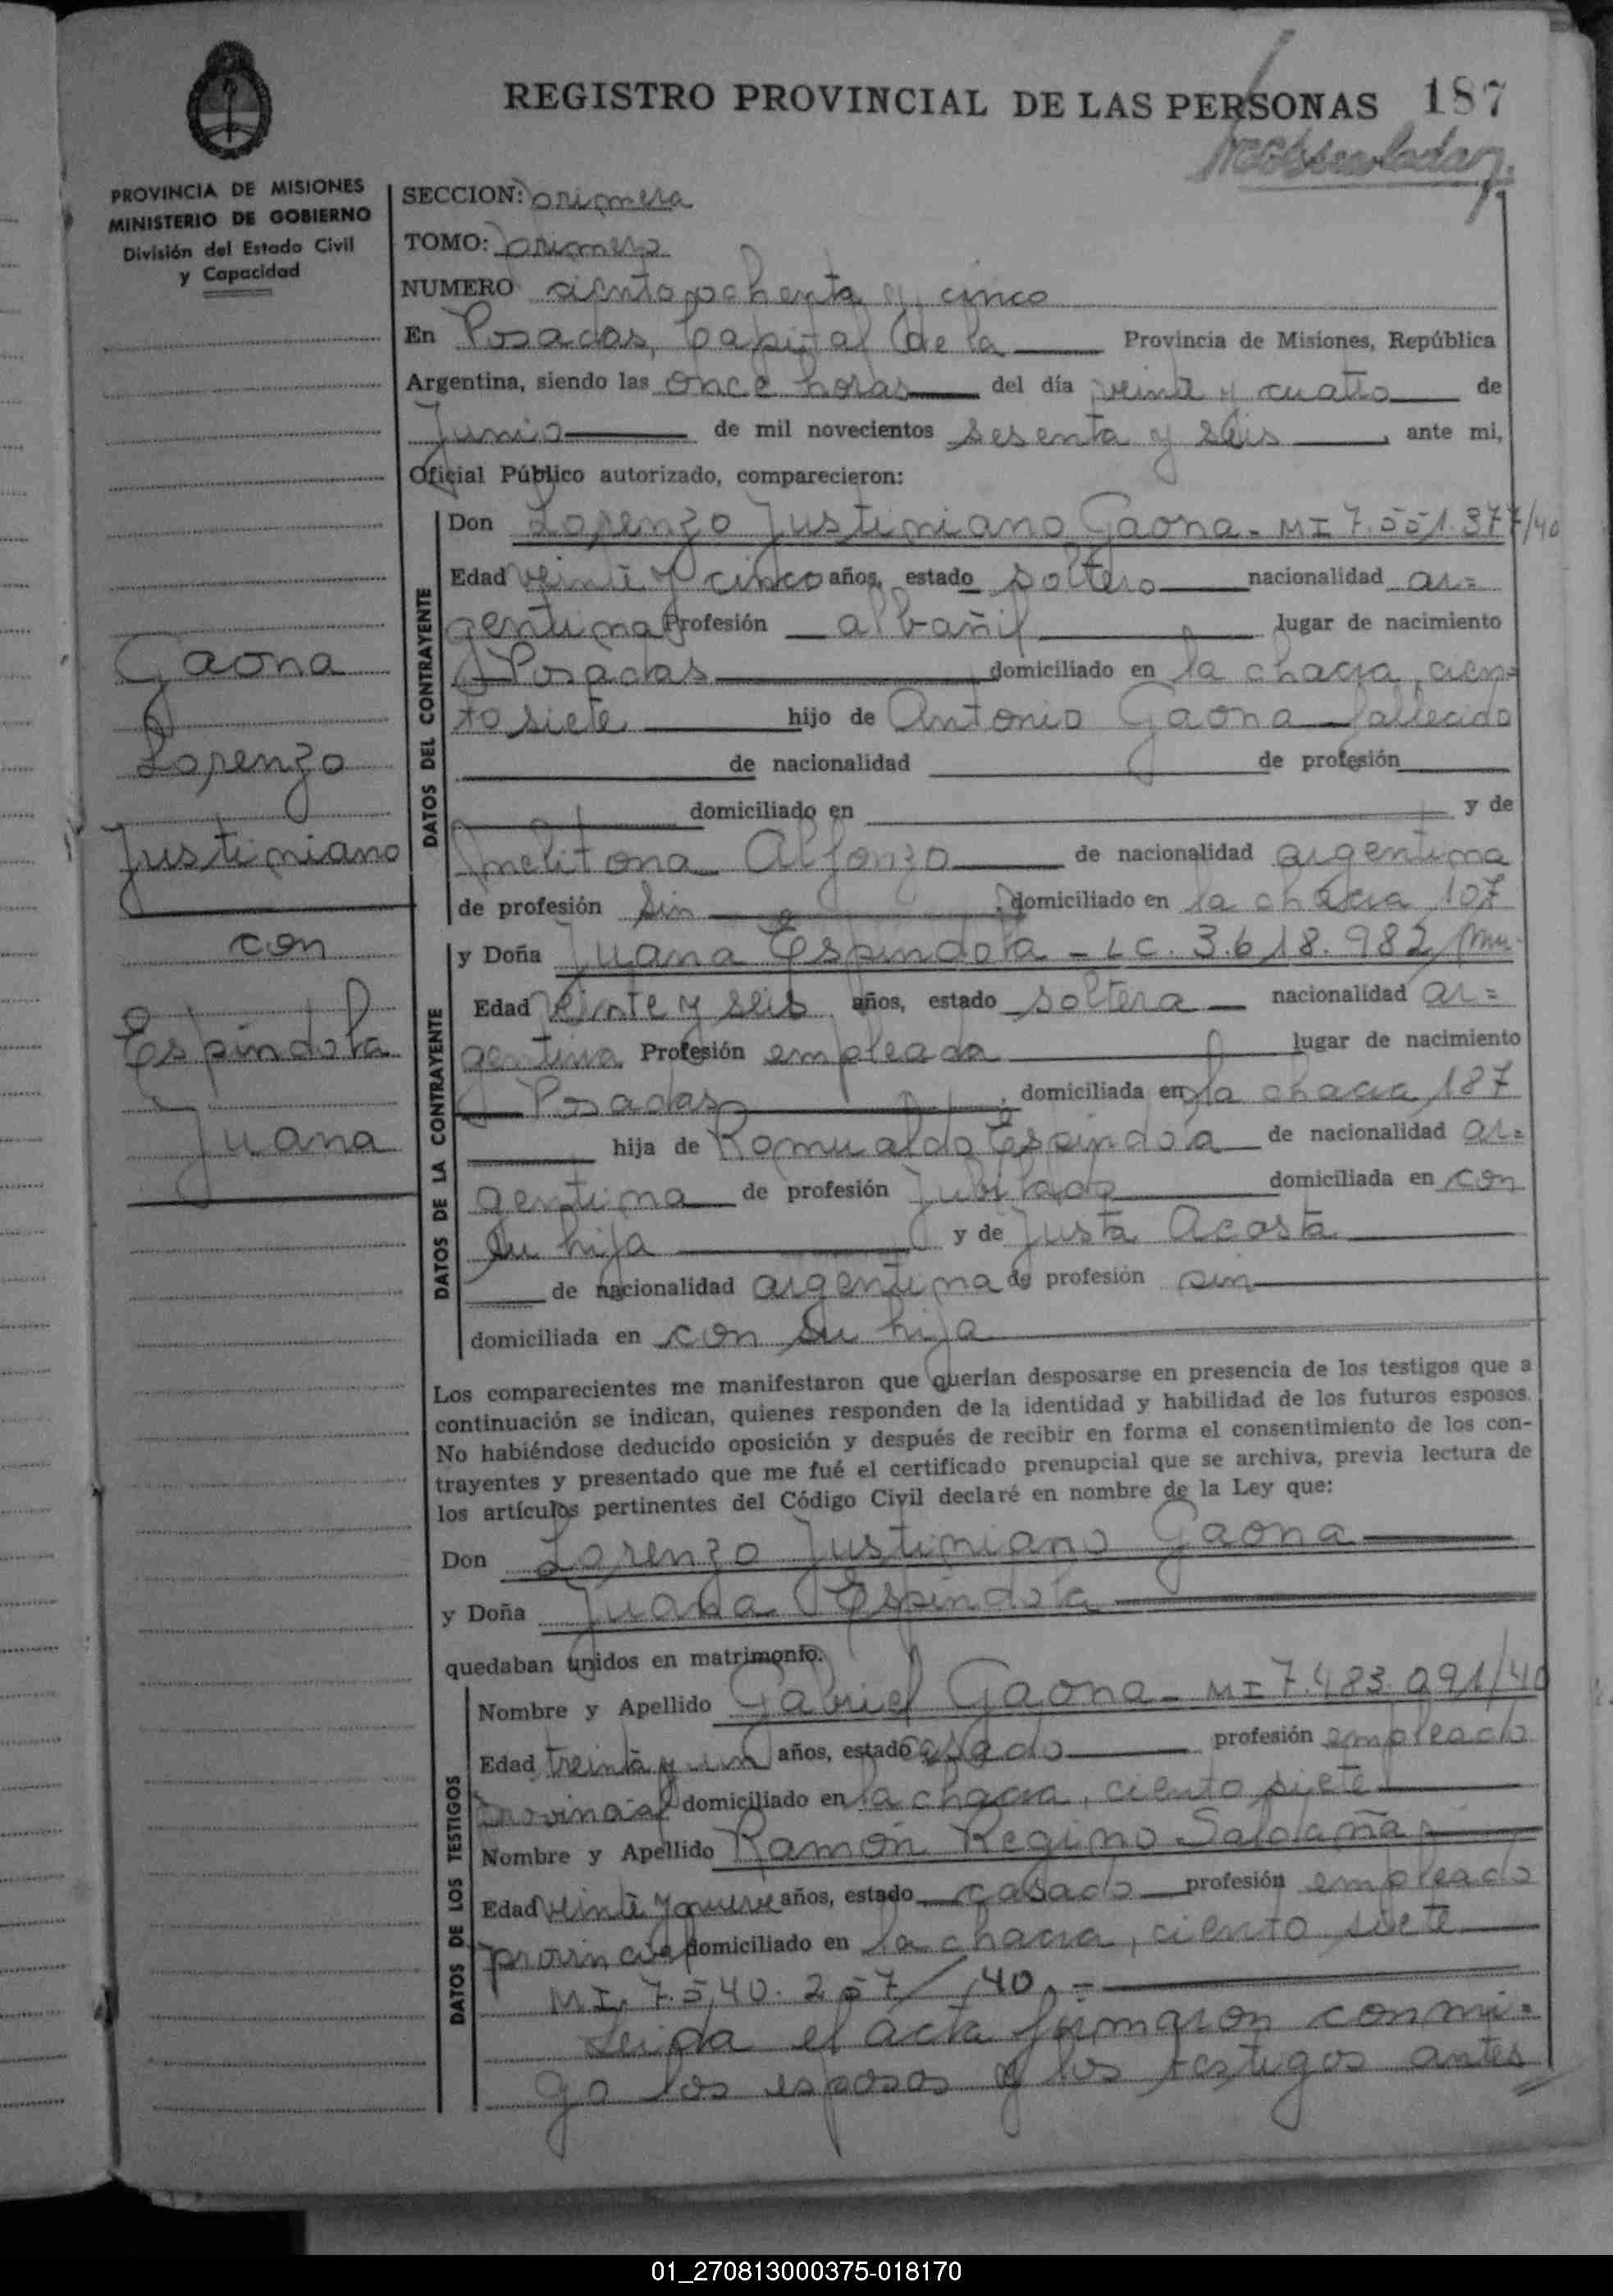 REGISTRO PROVINCIAL DE LAS PERSONAS 187
PROVINCIA DE MISIONES
MINISTERIO DE GOBIERNO
División del Estado Civil
y Capacidad
SECCION: primera
TOMO: primero
NUMERO ciento ochenta y cinco
En Posadas, Capital de la Provincia de Misiones, República
Argentina, siendo las once horas del día veinte y cuatro de
Junio de mil novecientos sesenta y seis, ante mi,
Oficial Público autorizado, comparecieron:
DATOS DEL CONTRAYENTE
Don Lorenzo Justiniano Gaona - MI 7.551.377/40
Edad veinte y cinco años, estado soltero nacionalidad ar=
gentina Profesión albañil lugar de nacimiento
Posadas domiciliado en la chacra cien=
to siete hijo de Antonio Gaona fallecido
de nacionalidad de profesión
domiciliado en y de
Melitona Alfonzo de nacionalidad argentina
de profesión sin domiciliado en la chacra 107
DATOS DE LA CONTRAYENTE
y Doña Juana Espíndola - LC. 3.618.982
Edad veinte y seis años, estado soltera nacionalidad ar=
gentina Profesión empleada lugar de nacimiento
Posadas, domiciliada en la chacra 187
hija de Romualdo Espindola de nacionalidad ar=
gentina de profesión Jubilado domiciliada en con
su hija y de Justa Acosta
de nacionalidad argentina de profesión sin
domiciliada en con su hija
Gaona
Lorenzo
Justiniano
con
Espíndola
Juana
Los comparecientes me manifestaron que querían desposarse en presencia de los testigos que a
continuación se indican, quienes responden de la identidad y habilidad de los futuros esposos.
No habiéndose deducido oposición y después de recibir en forma el consentimiento de los con-
trayentes y presentado que me fué el certificado prenupcial que se archiva, previa lectura de
los artículos pertinentes del Código Civil declaré en nombre de la Ley que:
Don Lorenzo Justiniano Gaona
y Doña Juana Espíndola
quedaban unidos en matrimonio.
DATOS DE LOS TESTIGOS
Nombre y Apellido Gabriel Gaona - MI 7.483.091/40
Edad treinta y un años, estado casado profesión empleado
provincial domiciliado en la chacra, ciento siete
Nombre y Apellido Ramón Regino Saldaña
Edad veinte y nueve años, estado casado profesión empleado
provincial domiciliado en la chacra, ciento siete
MI. 7.540.257/40.-
Leida el acta firmaron conmi=
go los esposos y los testigos antes
01_270813000375-018170